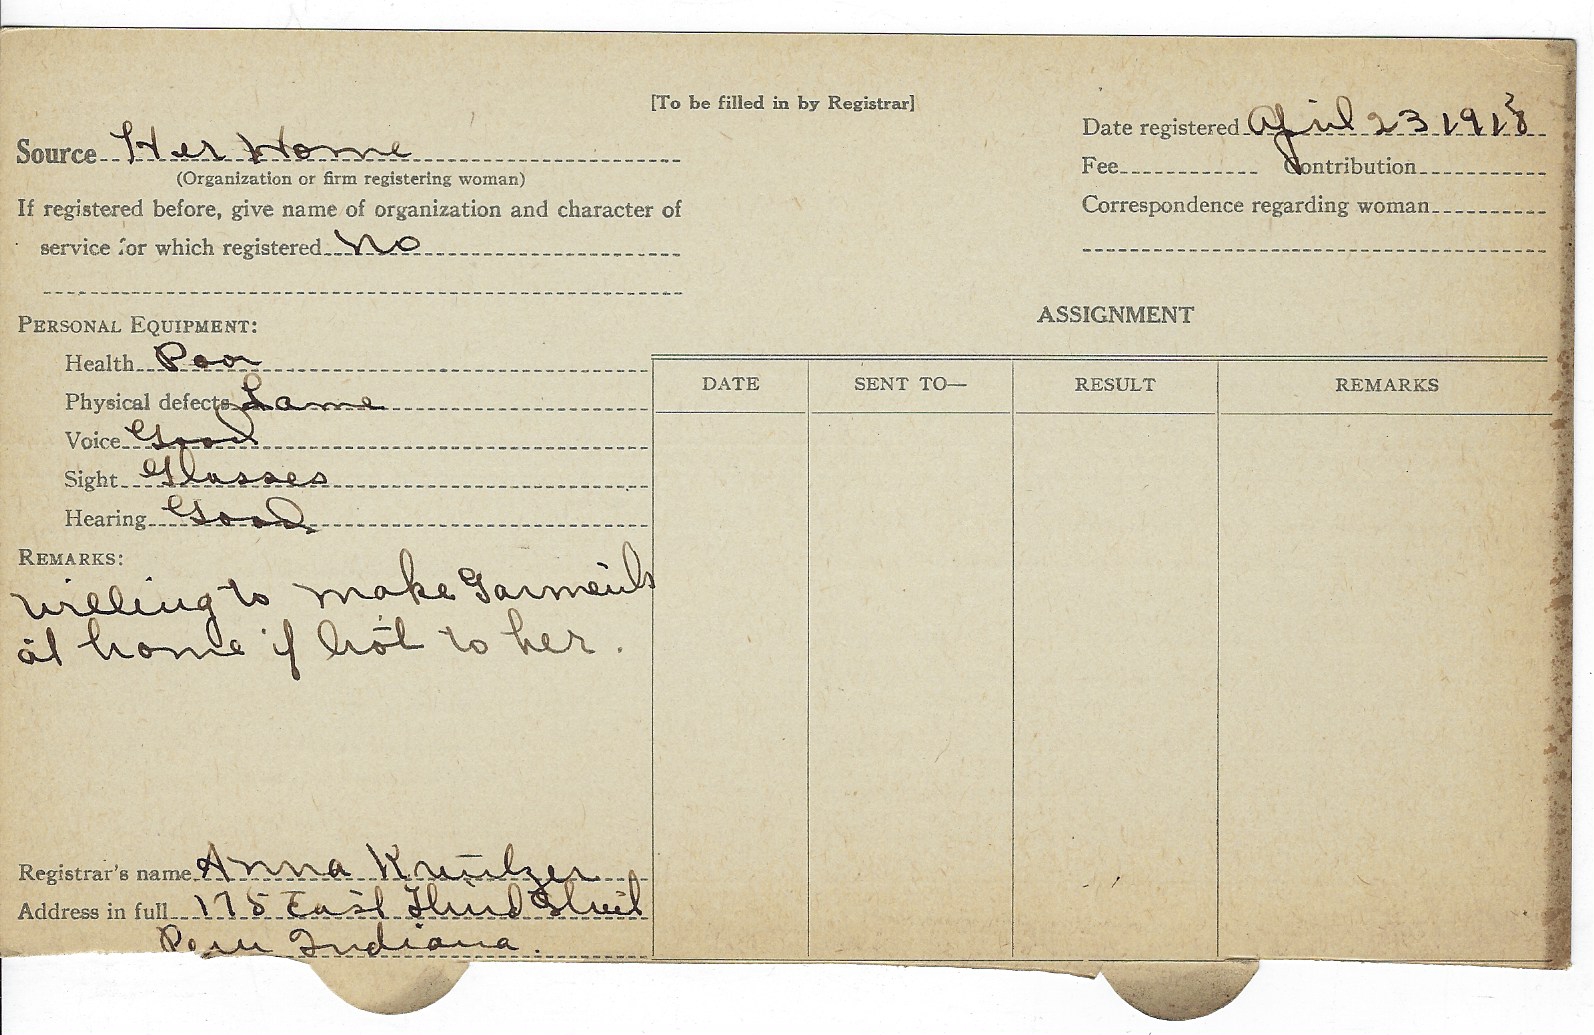 [To be filled in by Registrar]
Source Her Home
(Organization or firm registering woman)
If registered before, give name of organization and character of
service for which registered No
Date registered April 23 1918
Fee Contribution
Correspondence regarding woman
PERSONAL EQUIPMENT:
Health Poor
Physical defects Lame
Voice Good
Sight Glasses
Hearing Good
REMARKS:
Willing to make Garments
at home if brōt to her.
Registrar's name Anna Kreutzer
Address in full 175 East Third Street
Peru Indiana.
ASSIGNMENT
DATE SENT TO— RESULT REMARKS